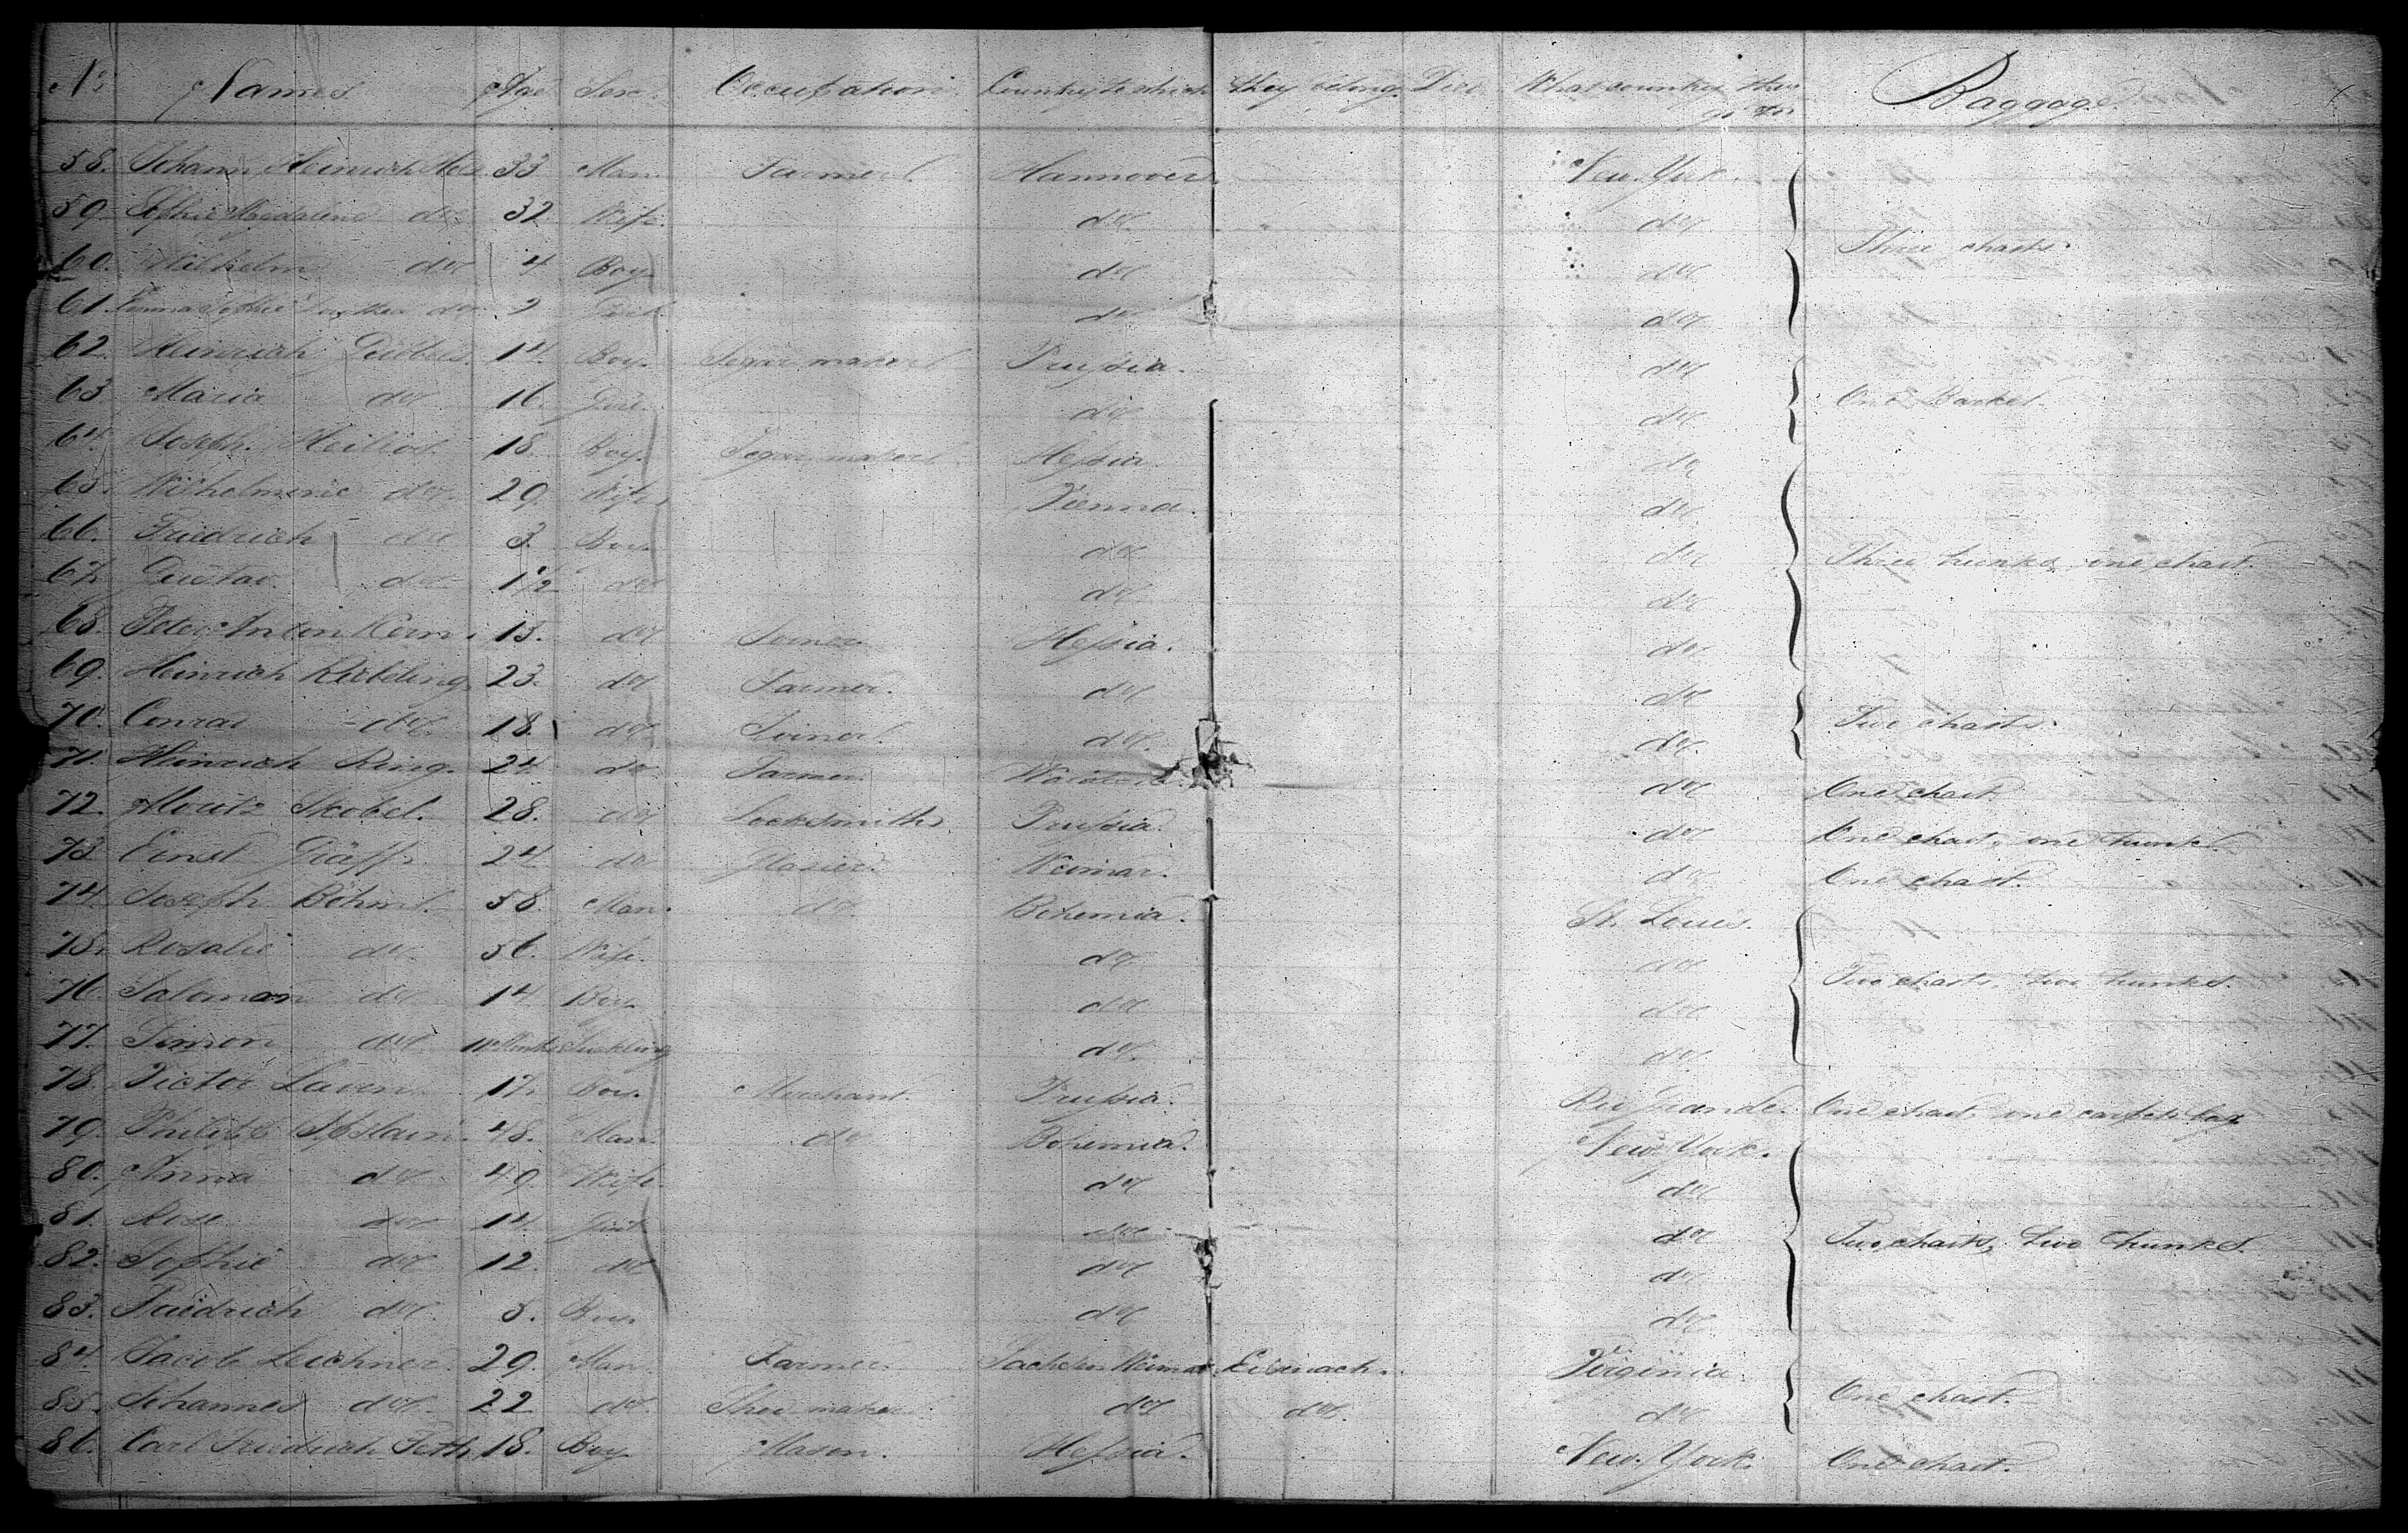 No. Names. Age Sex. Occupation. Country to which they belong. Died What country they go to. Baggage.
58. Johann Heinrich 33 Man. Farmer Hannover. New-York.
59. Sophie Magdalene do 32 Wife. do. do
60. Wilhelm do 4 Boy do do Three chasts.
61. Sophie do 2 Girl do do
62. Heinrich 14. Boy. Segar maker Prussia. do
63 Maria do 16. Girl. do do One Basket.
64. Joseph 18 Boy. Segar maker Hessia. do
65. Wilhelmine do. 29. Wife Vienna. do
66. Friedrich do 3. Boy. do do Three trunks, one chast.
67. Gustav. do 1 1/2 do do. do
68. Peter Anton Kern. 15. do Joiner Hessia. do
69. Heinrich Riebeling. 23. do Farmer. do do
70. Conrad do. 18. do Joiner. do. do. Two chasts.
71. Heinrich Ring. 24. do Farmer do One chast.
72. Moritz Skobel. 28. do Locksmith Prussia. do One chast, one trunk.
73. Ernst Gräff. 24 do Glasier. Weimar. do One chast.
74. Joseph Böhm. 58. Man. do. Bohemia. St. Louis.
75. Rosalie do. 56. Wife. do do
76. Saloman do 14. Boy. do do Two chasts, two trunks.
77. Simon do Suckling do. do.
78. Victor 17. Boy. Merchant. Prussia. Rio Grande. One chast one carpet bag
79. 48. Man. do Bohemia. New-York.
80. Anna do 49. Wife. do do
81. Rose do 14. Girl do do Two chasts, two trunks.
82. Sophie do 12. do do do
83. Friedrich do. 5. Boy. do do.
84. Jacob Leichner. 29. Man. Farmer Sachsen Weimar Eisenach. Virginia.
85. Johannes do. 22 do. Shoe maker do do. do One chast.
86. Carl Friedrich 18. Boy Mason. Hessia. New-York. One chast.